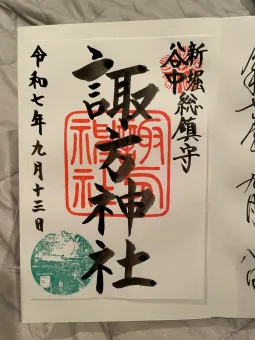 新堀
谷中
総鎮守
諏方神社
令和七年九月十三日
諏方
神社